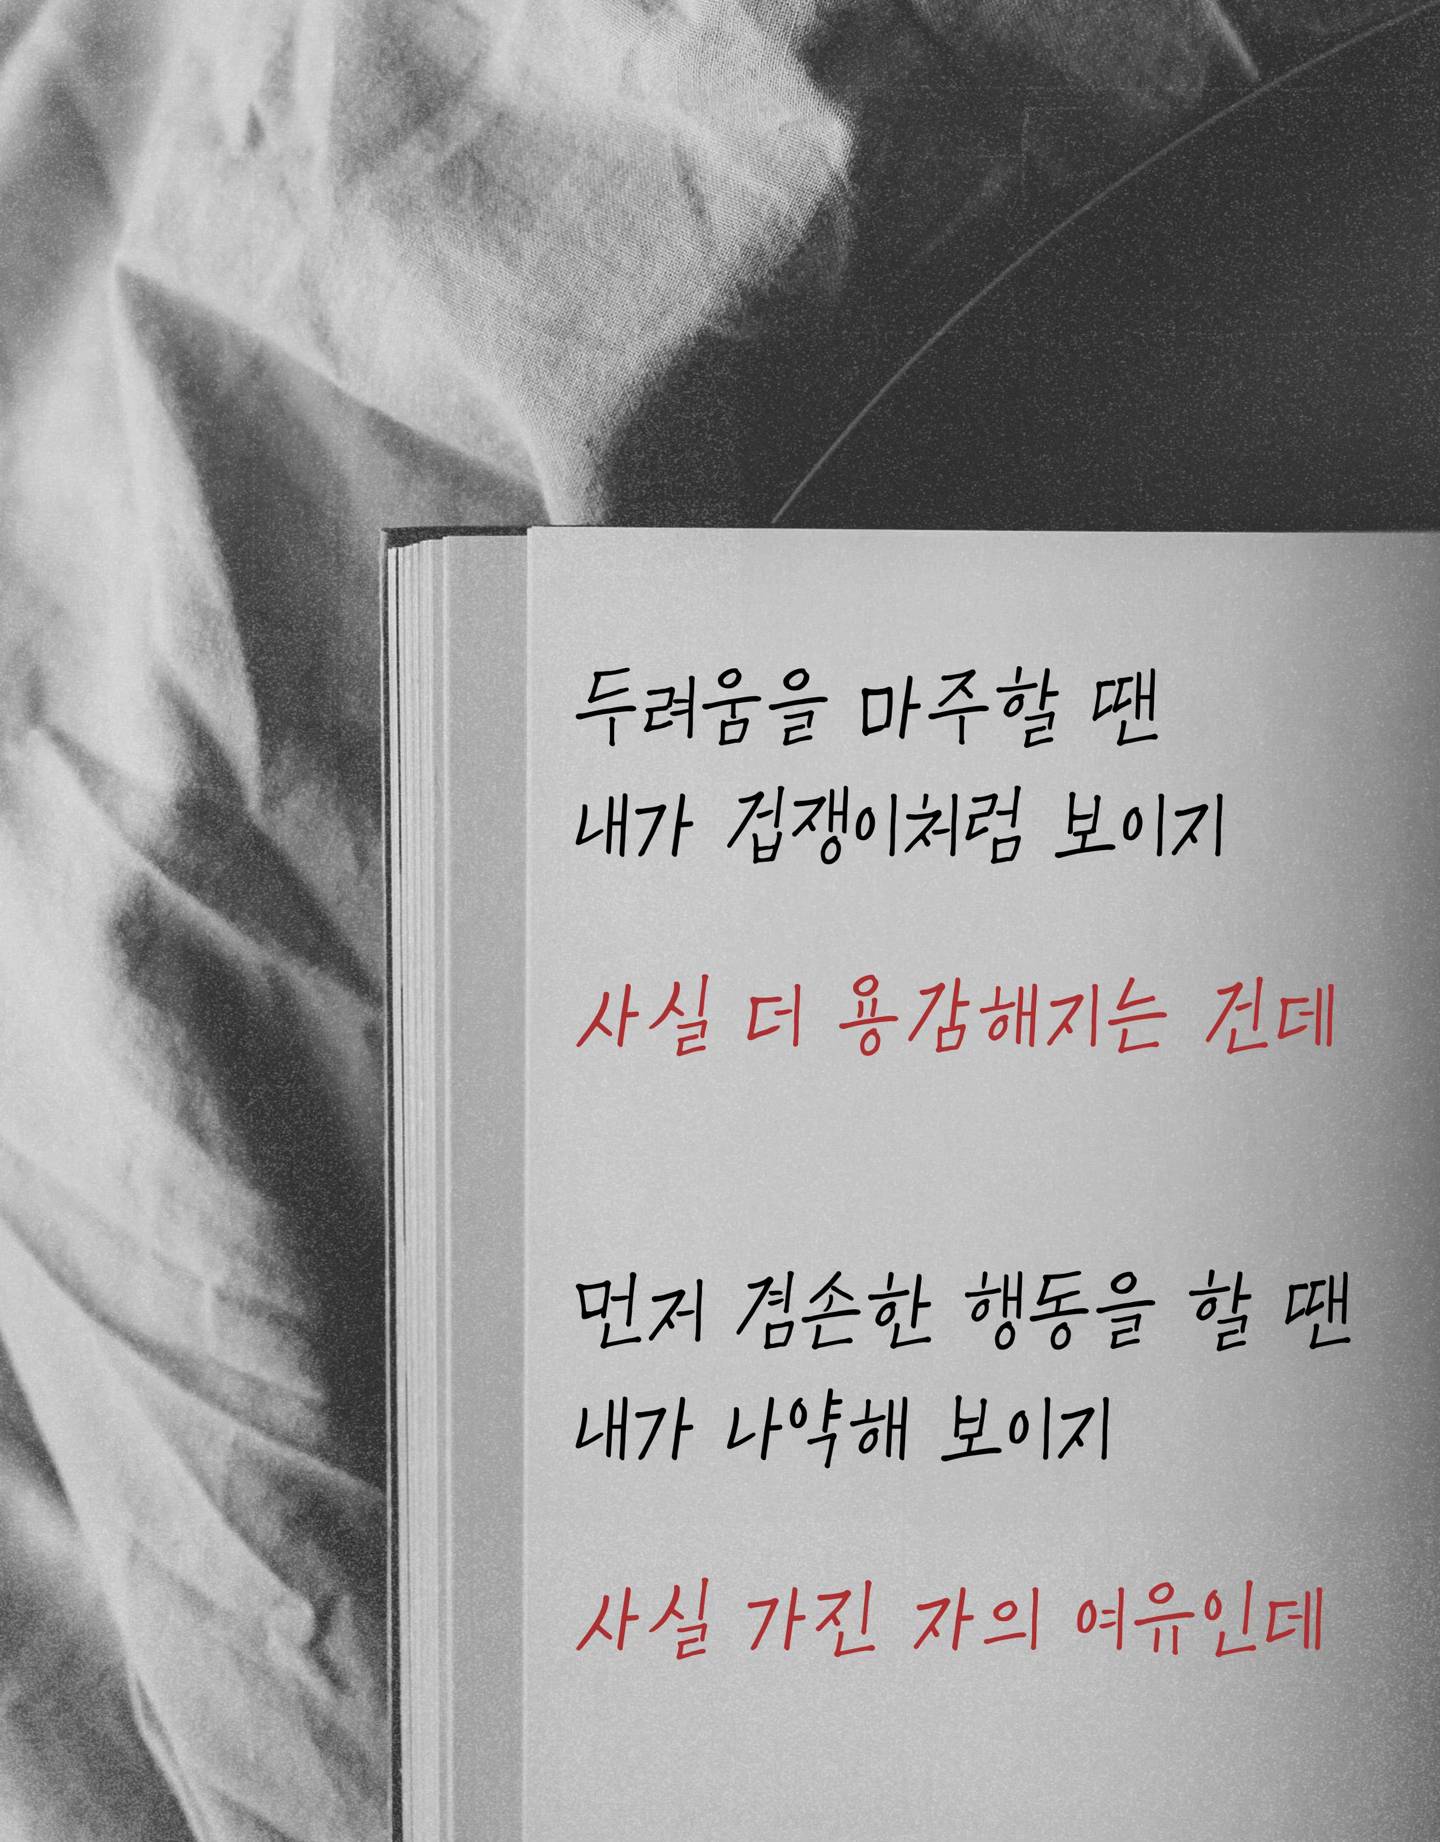 두려움을 마주할 땐
내가 겁쟁이처럼 보이지
사실 더 용감해지는 건데
먼저 겸손한 행동을 할 땐
내가 나약해 보이지
사실 가진 자의 여유인데